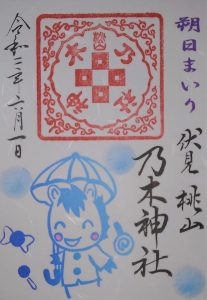 朔日まいり
伏見桃山
乃木神社
令和三年六月一日